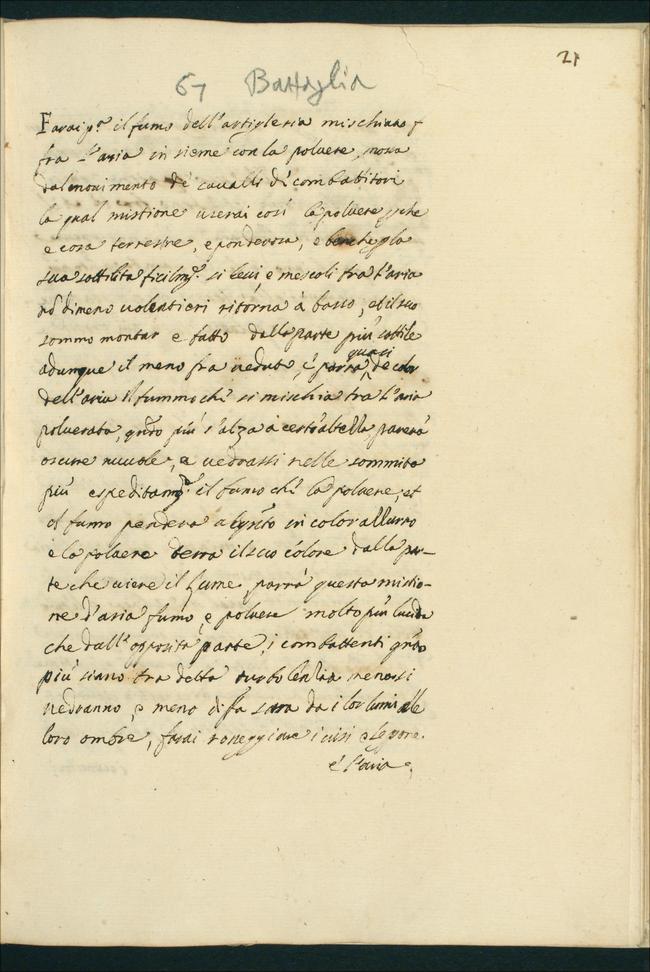 21
67 Battaglia
Farai p.ª il fumo dell'artigleria mischiato
fra l'aria in sieme con la poluere, mossa
dal mouimento de caualli di combattitori
la qual mistione userai così la poluere, perche
e cosa terrestre, e ponderosa, e benche per la
sua sottilita ficilmẽ. si leui, e mescoli fra l'aria
nõ dimeno uolentieri ritorna à basso, et il suo
sommo montar e fatto dalla parte più sottile
adunque il meno fra ueduta, e parrà quasi de color
dell'aria il fummo chè si mischia tra l'aria
poluerata, qñdo più s'alza a certa altella, parerà
oscure nuuole, e uedrassi nelle sommita
più espeditamẽ. il fumo chè la poluere, et
el fumo pendera alqñto in color allurro
e la poluere terra il suo colore dalla par–
te che uiene il lume, parrà questa mistio–
ne d'aria fumo, e poluere molto più lucida
che dall'opposita parte, i combattenti qñdo
più siano tra detta turbolenlia meno si
uedranno, e meno diffa sara da i lor lumi alle
loro ombre, farai roseggiare i uisi e le persone
e l'aria e,